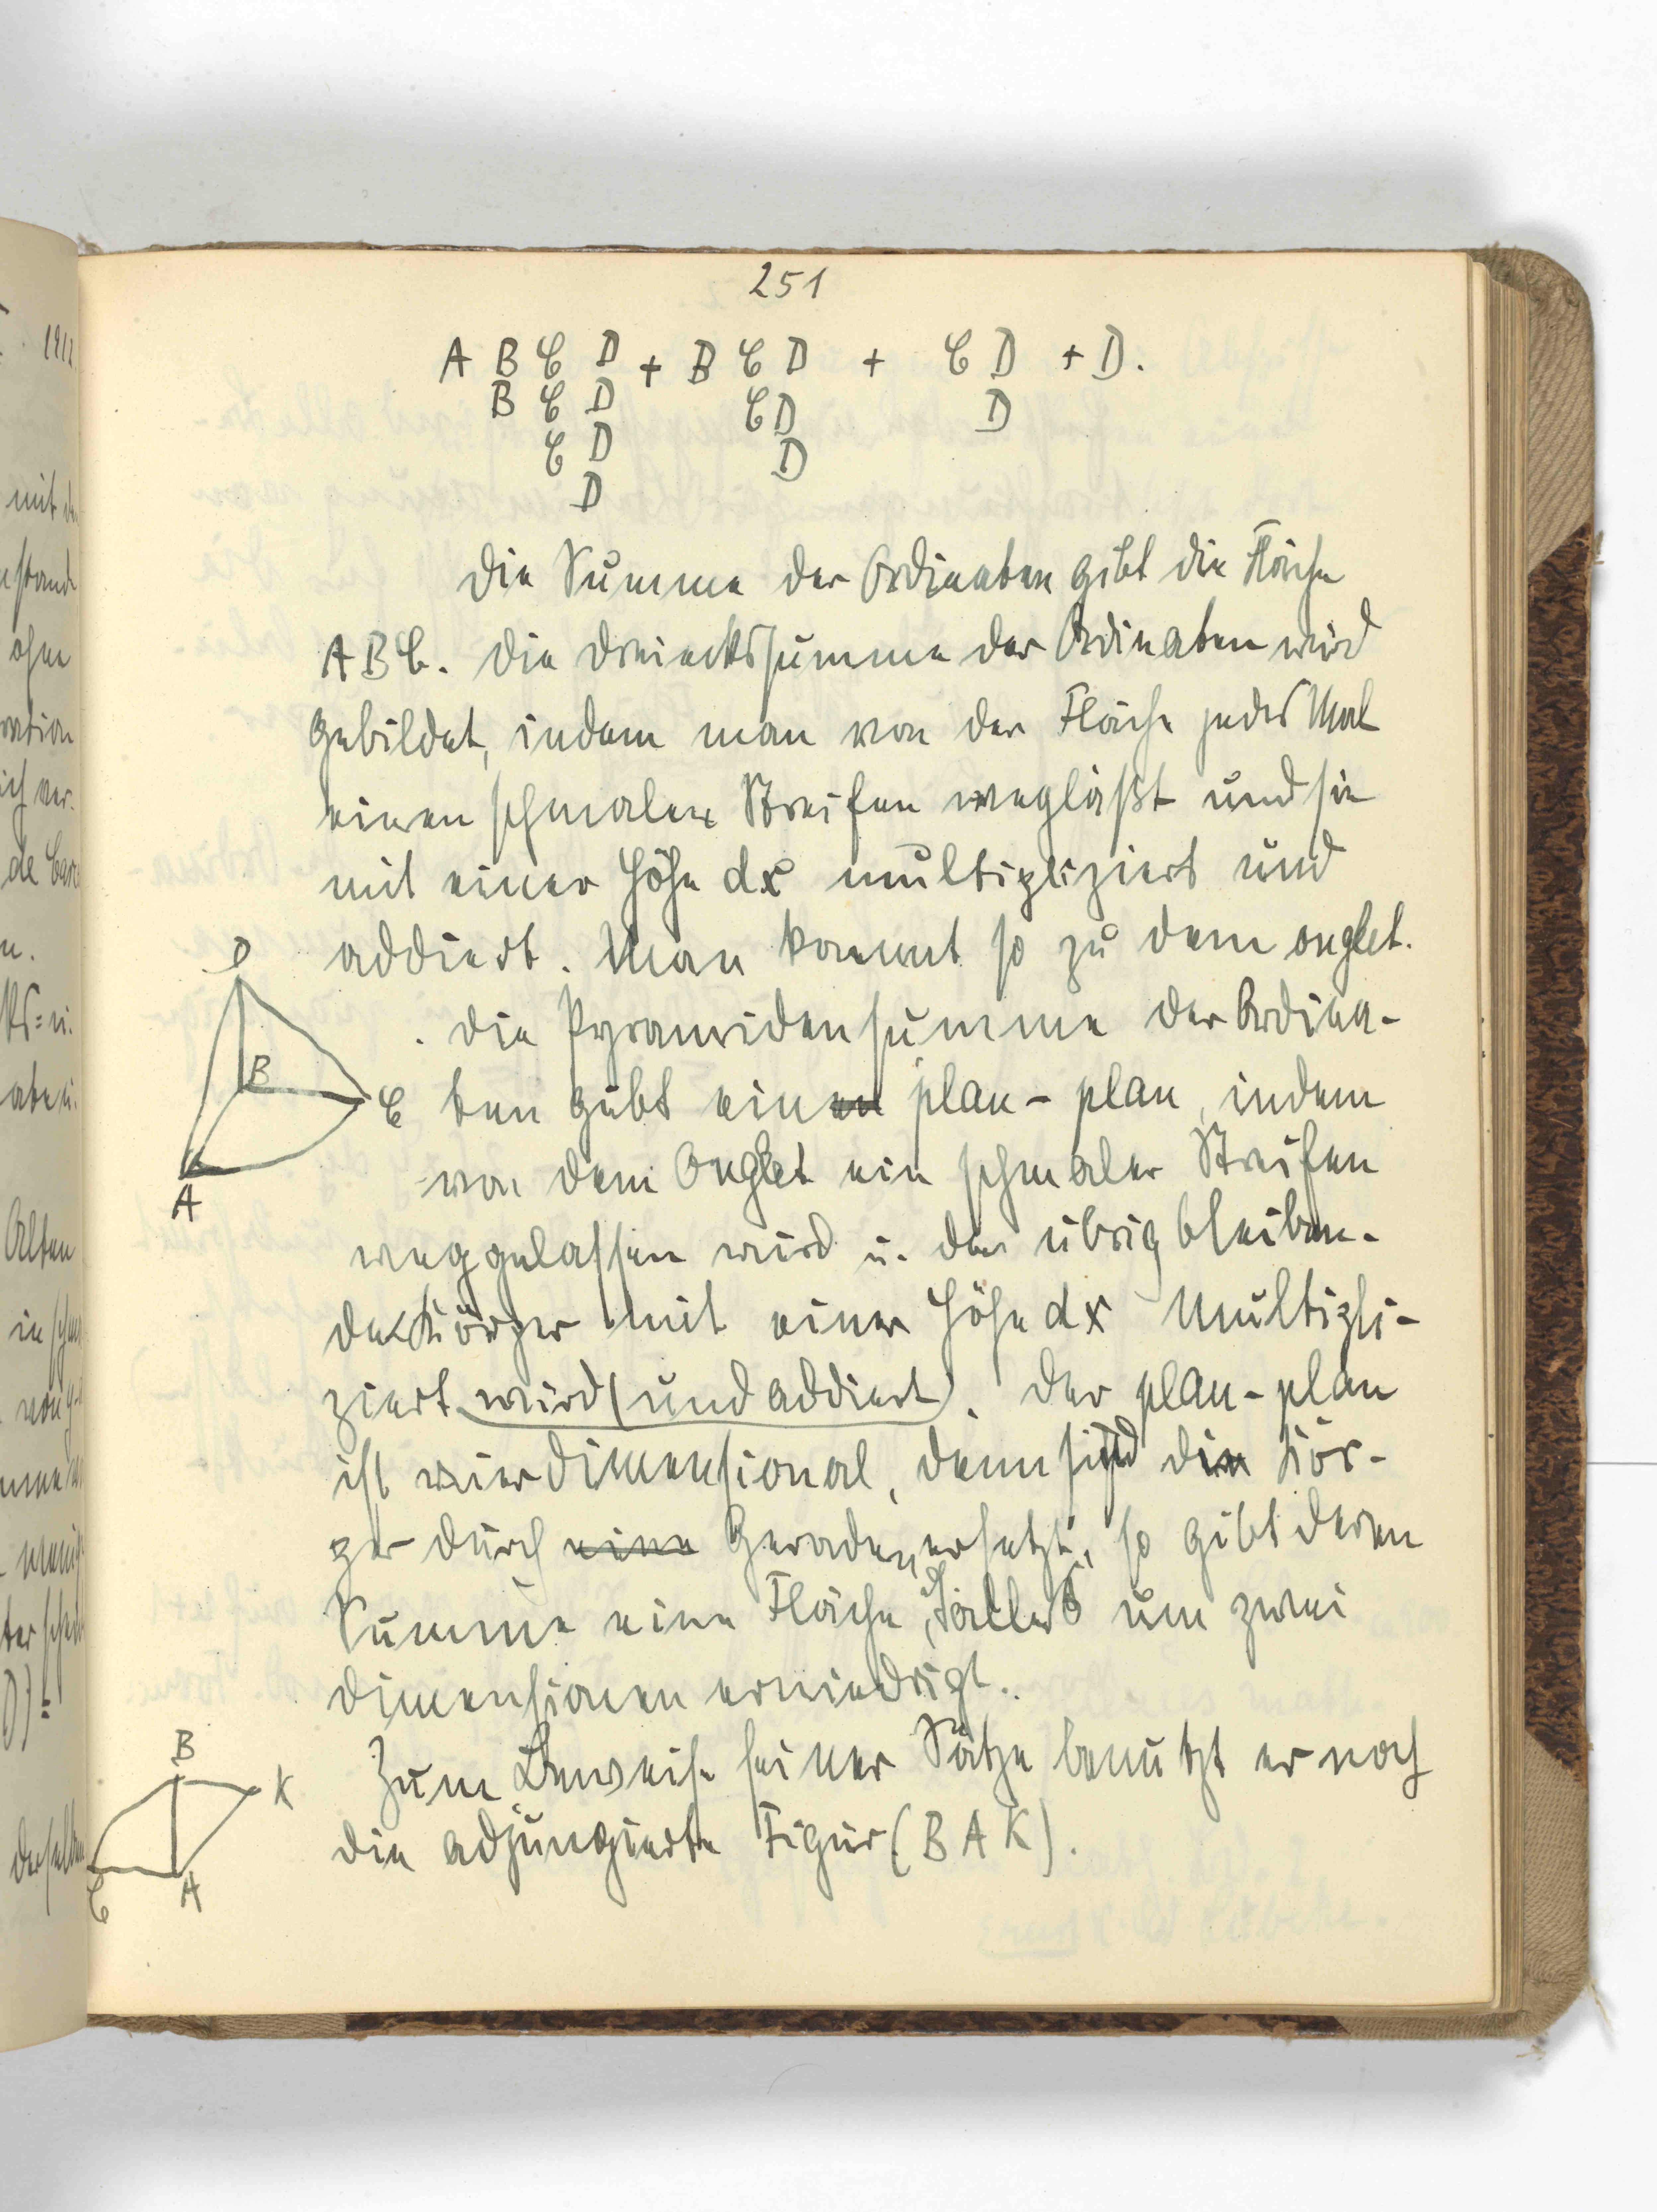 251
A B C D + B C D + C D + D.
B C D C D D
C D D
D
Die Summe der Ordinaten gibt die Fläche
A B C. Die Dreieckssumme der Ordinaten wird
gebildet, indem man von der Fläche jedes Mal
einen schmalen Streifen wegläßt und sie
mit einer Höhe dx multipliziert und
addiert. Man kommt so zu dem onglet.
Die Pyramidensumme der Ordina-
ten gibt einen plan-plan, indem
von dem Onglet ein schmaler Streifen
weggelassen wird u. der übrig bleiben-
de Körper mit einer Höhe dx multipli-
ziert wird (und addiert). Der plan-plan
ist vierdimensional, denn sind die Kör-
per durch eine Geraden ersetzt, so gibt deren
Summe eine Fläche, alles um zwei
Dimensionen erniedrigt.
Zum Beweise seiner Sätze benutzt er noch
die adjungierte Figur (B A K).
D
B
C
A
B
K
C
A
1912
mit de
stand
ohne
ration
ich ver-
de Carc
n.
Alten
in schm
von
derselben